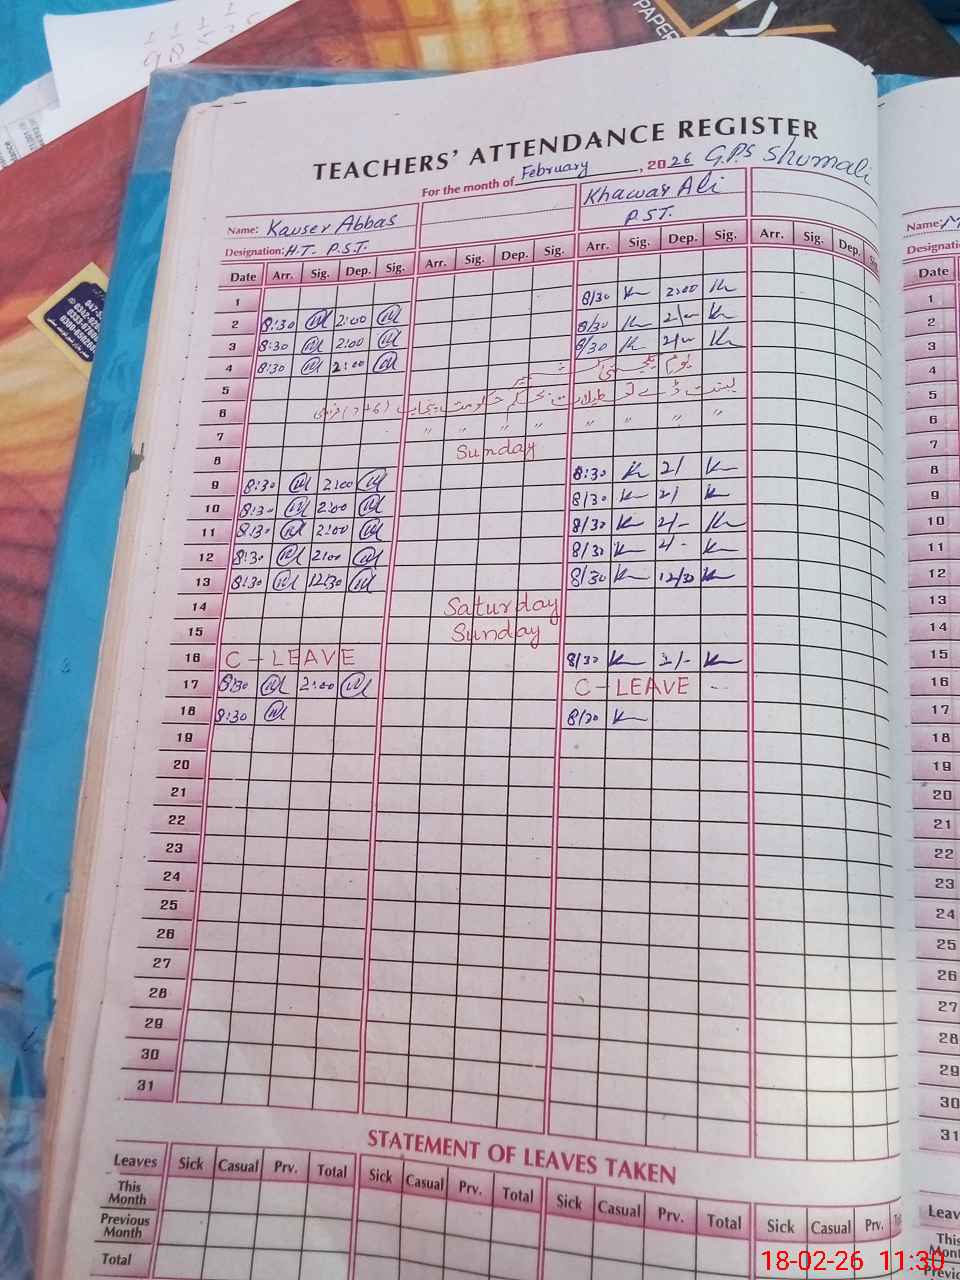 PAPER
TEACHERS' ATTENDANCE REGISTER
For the month of February, 2026 G.P.S Shumali
Name: Kauser Abbas Khawar Ali
Designation: H.T. P.S.T. P.S.T.
Date Arr. Sig. Dep. Sig. Arr. Sig. Dep. Sig. Arr. Sig. Dep. Sig. Arr. Sig. Dep.
1
2 8:30 2:00 8/30 2:00
3 8:30 2:00 8/30 2/-
4 8:30 2:00 8/30 2/-
5 یوم یکجہتی کشمیر
6 بسنت
7 " " " " " " " "
8 Sunday
9 8:30 2:00 8:30 2/
10 8:30 2:00 8/30 2/
11 8:30 2:00 8/30 2/-
12 8:30 2:00 8/30 2/-
13 8:30 12:30 8/30 12/30
14 Saturday
15 Sunday
16 C-LEAVE 8/30 2/-
17 8:30 2:00 C-LEAVE
18 8:30 8/30
19
20
21
22
23
24
25
26
27
28
29
30
31
STATEMENT OF LEAVES TAKEN
Leaves Sick Casual Prv. Total Sick Casual Prv. Total Sick Casual Prv. Total Sick Casual Prv.
This Month
Previous Month
Total
Name:
Date
1
2
3
4
5
6
7
8
9
10
11
12
13
14
15
16
17
18
19
20
21
22
23
24
25
26
27
28
29
30
31
18-02-26 11:30